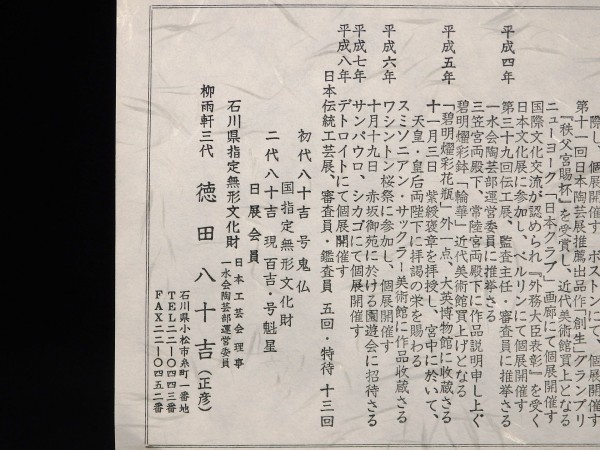 際し、個展開催す ボストンにて、個展開催す
第十一回日本陶芸展推薦出品作「創生」グランプリ
『秩父宮賜杯』を受賞し、近代美術館買上となる
ニューヨーク「日本クラブ」画廊にて個展開催す
国際文化交流が認められ『外務大臣表彰』を受く
日本文化展に参加し、ベルリンにて個展開催す
平成四年 第三十九回伝工展、監査主任・審査員に推挙さる
一水会陶芸部運営委員に推挙さる
三笠宮両殿下、常陸宮両殿下に作品説明申し上ぐ
碧明燿彩鉢「輪華」近代美術館買上げとなる
平成五年 「碧明燿彩花瓶」外一点、大英博物館に収蔵さる
十一月三日 紫綬褒章を拝受し、宮中に於いて、
天皇・皇后両陛下に拝謁の栄を賜わる
スミソニアン・サックラー美術館に作品収蔵さる
平成六年 ワシントン桜祭に参加し、個展開催す
十月十九日 赤坂御苑に於ける園遊会に招待さる
平成七年 サンパウロ、シカゴにて個展開催す
平成八年 デトロイトにて個展開催す
日本伝統工芸展、審査員・鑑査員 五回・特待 十三回
初代八十吉 号鬼仏
国指定無形文化財
二代八十吉 現百吉・号魁星
日展会員
石川県指定無形文化財
日本工芸会理事
一水会陶芸部運営委員
柳雨軒三代 徳田八十吉(正彦)
石川県小松市糸町一番地
TEL二二―〇四四三番
FAX二二―〇四五二番